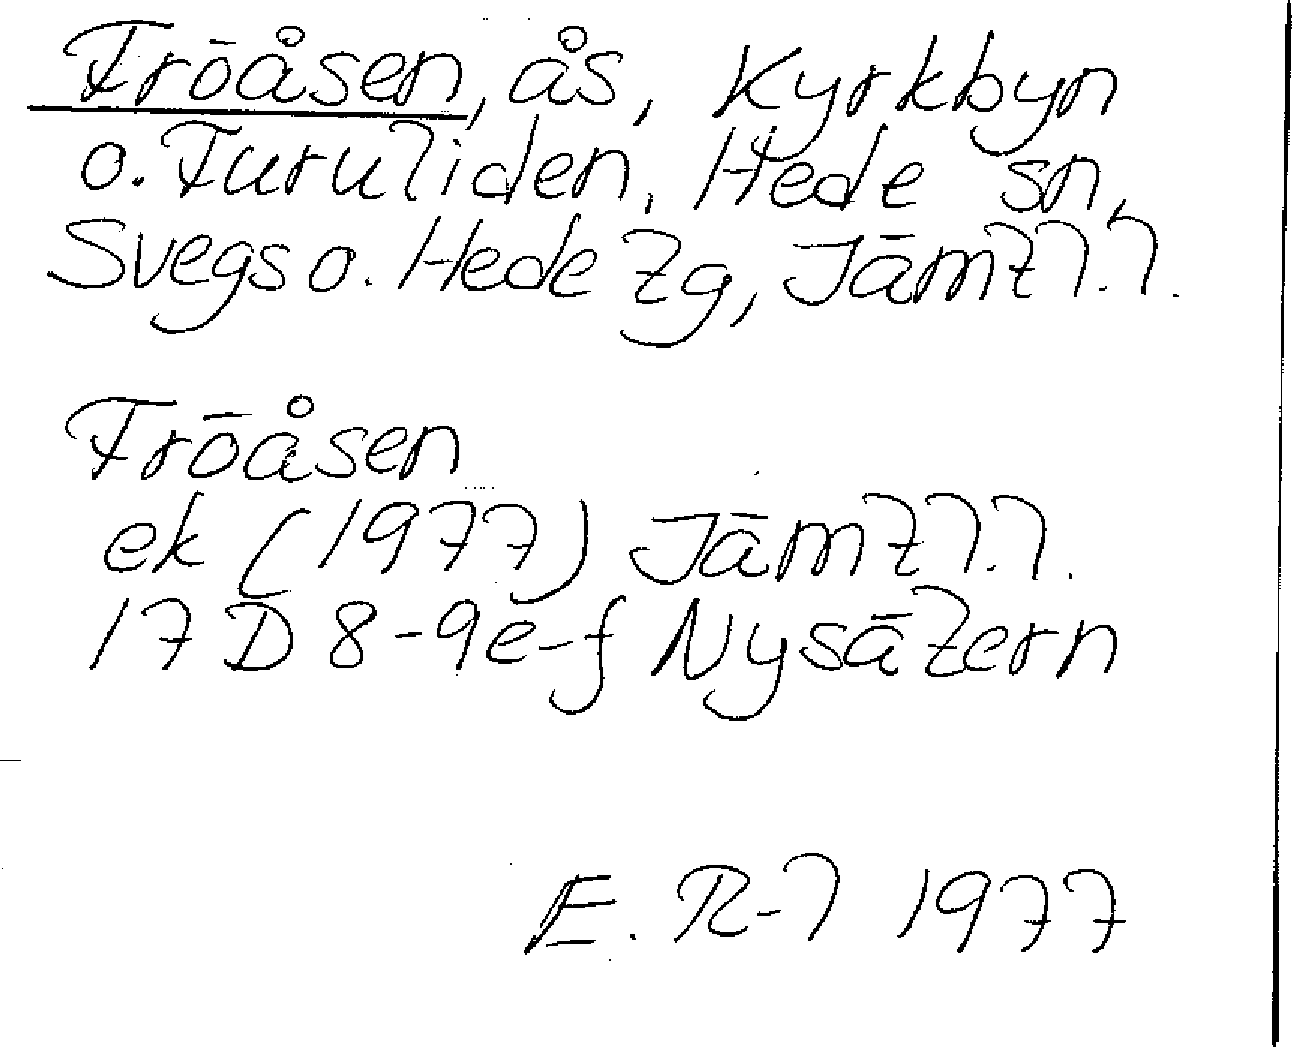 Fröåsen, ås, Kyrkbyn
o. Furuliden, Hede sn,
Svegs o. Hede tg, Jämtl.l.
Fröåsen
ek (1977) Jämtl.l.
17D 8-9e-f Nysätern
E. R-l 1977